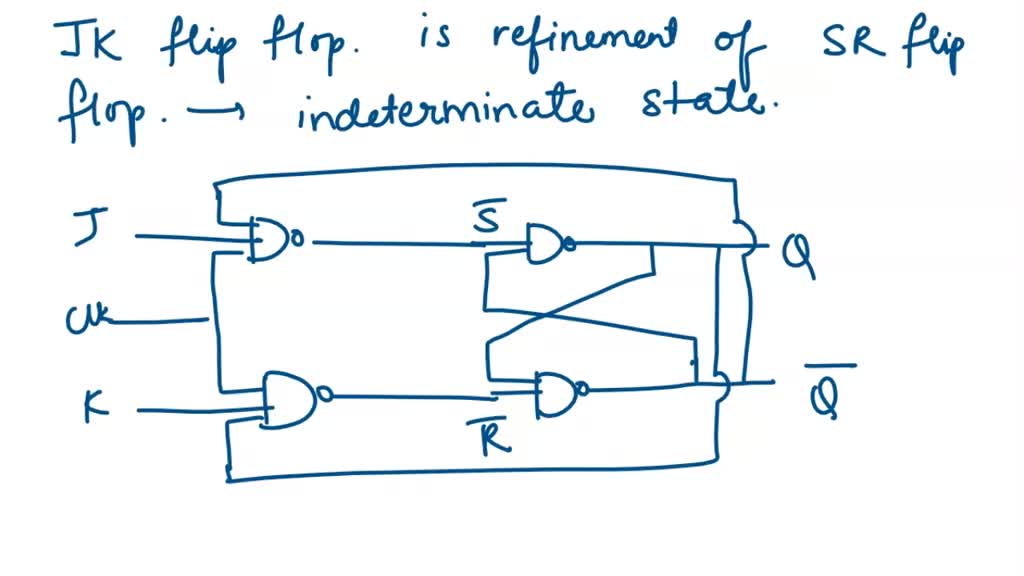 JK flip flop. is refinement of SR flip
flop. → indeterminate state.
J
S̅
Q
Clk
K
R̅
Q̅